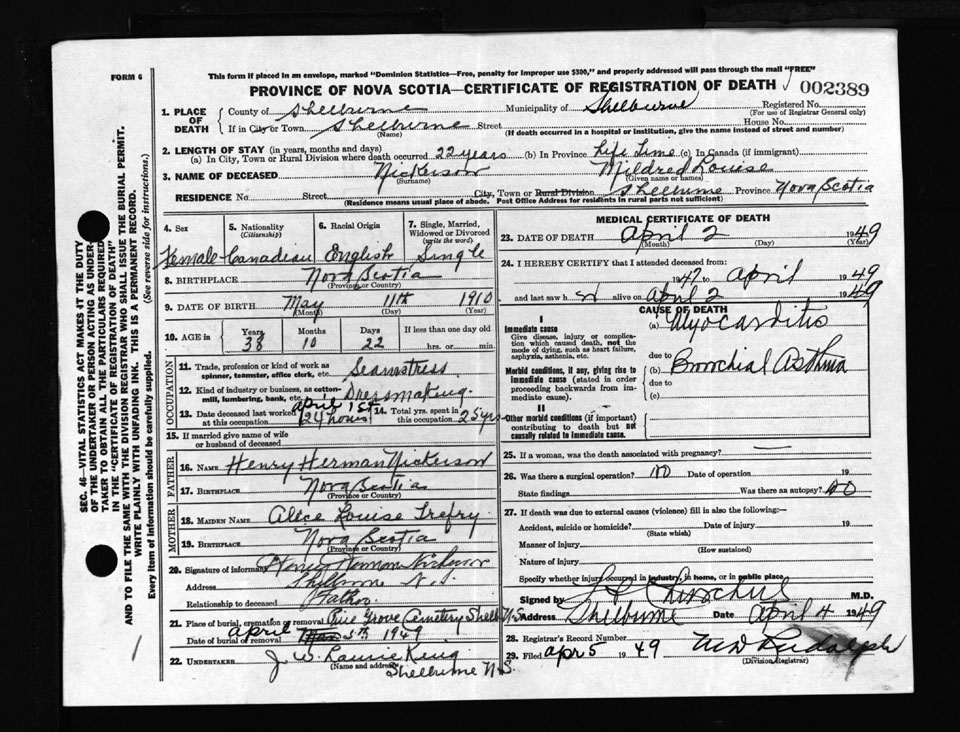 FORM 6
This form if placed in an envelope, marked "Dominion Statistics—Free, penalty for improper use $300," and properly addressed will pass through the mail "FREE"
PROVINCE OF NOVA SCOTIA—CERTIFICATE OF REGISTRATION OF DEATH 002389
1. PLACE OF DEATH County of Shelburne Municipality of Shelburne Registered No. (For use of Registrar General only)
If in City or Town Shelburne (Name) Street House No.
(If death occurred in a hospital or institution, give the name instead of street and number)
2. LENGTH OF STAY (in years, months and days)
(a) In City, Town or Rural Division where death occurred 22 years (b) In Province Life Time (c) In Canada (if immigrant)
3. NAME OF DECEASED Nickerson (Surname) Mildred Louise (Given name or names)
RESIDENCE No. Street City, Town or Rural Division Shelburne Province Nova Scotia
(Residence means usual place of abode. Post Office Address for residents in rural parts not sufficient)
4. Sex 5. Nationality (Citizenship) 6. Racial Origin 7. Single, Married, Widowed or Divorced (write the word)
Female Canadian English Single
8. BIRTHPLACE Nova Scotia (Province or Country)
9. DATE OF BIRTH May 11th 1910
(Month) (Day) (Year)
10. AGE in Years Months Days If less than one day old
38 10 22 hrs. or min.
OCCUPATION
11. Trade, profession or kind of work as spinner, teamster, office clerk, etc. Seamstress
12. Kind of industry or business, as cotton-mill, lumbering, bank, etc. Dressmaking
13. Date deceased last worked at this occupation April 1st 24 hours 14. Total yrs. spent in this occupation 25 yrs
15. If married give name of wife or husband of deceased
FATHER
16. NAME Henry Herman Nickerson
17. BIRTHPLACE Nova Scotia (Province or Country)
MOTHER
18. MAIDEN NAME Alice Louise Trefry
19. BIRTHPLACE Nova Scotia (Province or Country)
20. Signature of informant Herman Nickerson
Address Shelburne N.S.
Relationship to deceased Father
21. Place of burial, cremation or removal Pine Grove Cemetery Shelb. N.S.
Date of burial or removal April 5th 1949
22. UNDERTAKER J. W. Laurie King
(Name and address) Shelburne N.S.
MEDICAL CERTIFICATE OF DEATH
23. DATE OF DEATH April 2 1949
(Month) (Day) (Year)
24. I HEREBY CERTIFY that I attended deceased from:
1947 to April 1949
and last saw h er alive on April 2 1949
CAUSE OF DEATH
I
Immediate cause
Give disease, injury or complication which caused death, not the mode of dying, such as heart failure, asphyxia, asthenia, etc.
(a) Myocarditis
due to
Morbid conditions, if any, giving rise to immediate cause (stated in order proceeding backwards from immediate cause).
(b) Bronchial Asthma
due to
(c)
II
Other morbid conditions (if important) contributing to death but not causally related to immediate cause.
25. If a woman, was the death associated with pregnancy? —
26. Was there a surgical operation? no Date of operation 19
State findings Was there an autopsy? no
27. If death was due to external causes (violence) fill in also the following:—
Accident, suicide or homicide? Date of injury 19
(State which)
Manner of injury (How sustained)
Nature of injury
Specify whether injury occurred in industry, in home, or in public place
Signed by M.D.
Address Shelburne Date April 4 1949
28. Registrar's Record Number
29. Filed Apr 5 1949 Rudolph
(Division Registrar)
SEC. 46—VITAL STATISTICS ACT MAKES AT THE DUTY
OF THE UNDERTAKER OR PERSON ACTING AS UNDER-
TAKER TO OBTAIN ALL THE PARTICULARS REQUIRED
IN THE "CERTIFICATE OF REGISTRATION OF DEATH"
AND TO FILE THE SAME WITH THE DIVISION REGISTRAR WHO SHALL ISSUE THE BURIAL PERMIT.
WRITE PLAINLY WITH UNFADING INK. THIS IS A PERMANENT RECORD.
Every item of information should be carefully supplied. (See reverse side for instructions.)